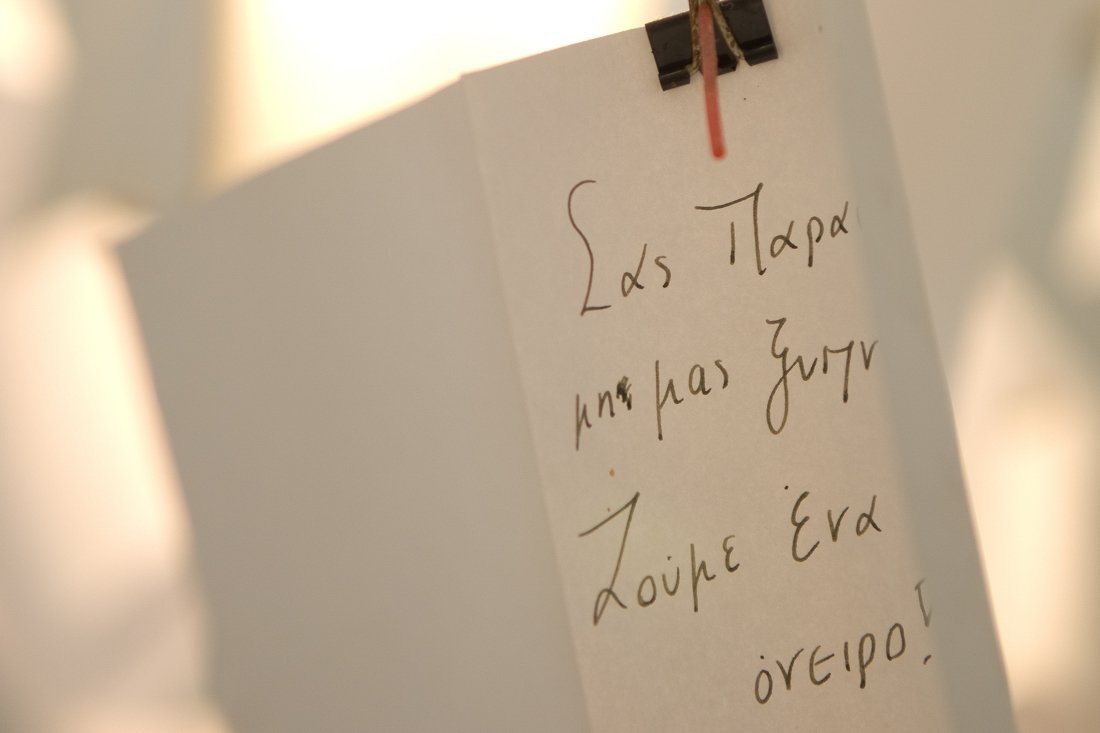 Σας Παρα
μην μας ξυπν
Ζούμε ένα
όνειρο!